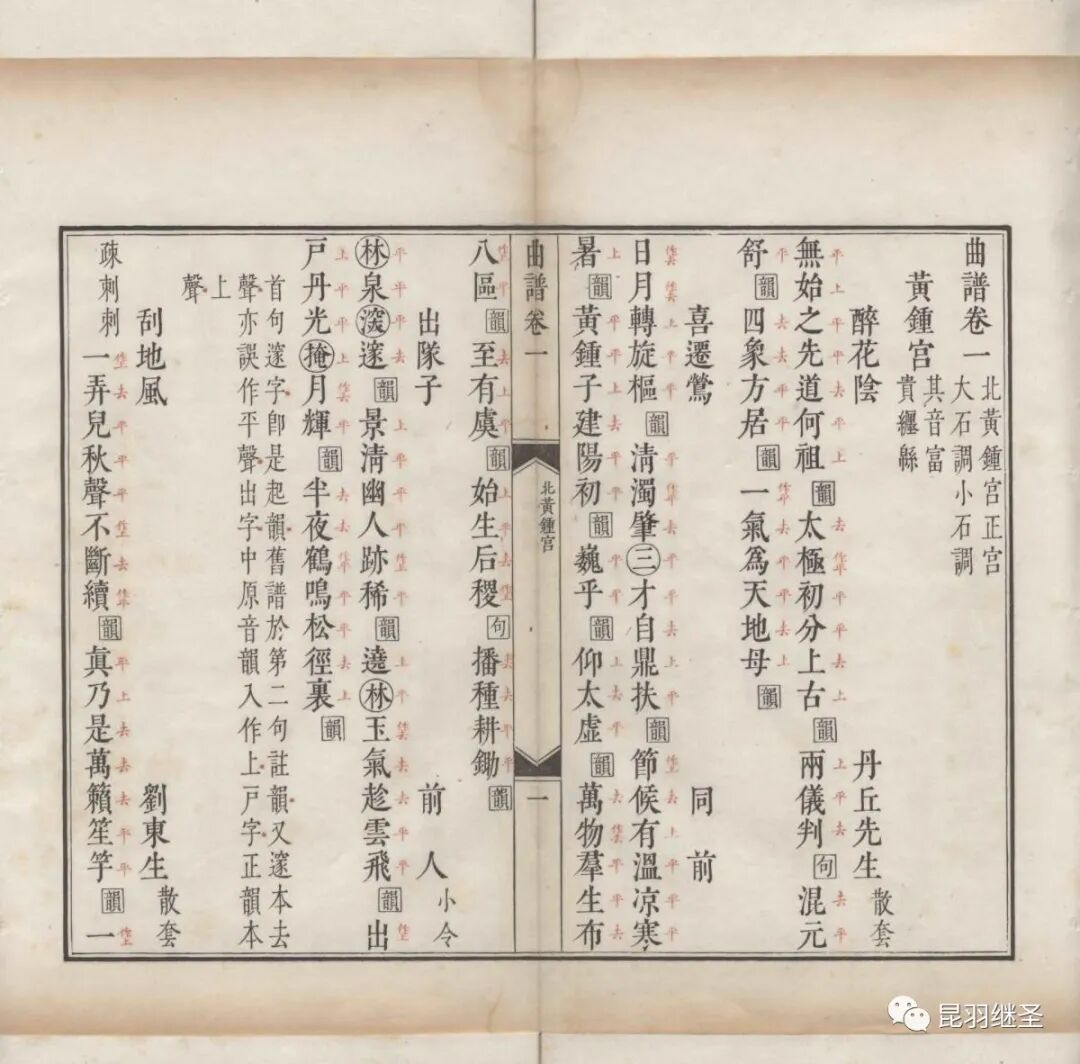 曲譜卷一
北黃鍾宫正宫
大石調小石調
黃鍾宫
其音富
貴纏緜
醉花陰 丹丘先生 散套
無始之先道何祖韻太極初分上古韻兩儀判句混元
舒韻四象方居韻一氣爲天地母韻
喜遷鶯 同前
日月轉旋樞韻淸濁肇三才自鼎扶韻節候有溫凉寒
暑韻黃鍾子建陽初韻巍乎韻仰太虛韻萬物羣生布
曲譜卷一 北黃鍾宫 一
八區韻至有虞韻始生后稷句播種耕鋤韻
出隊子 前人 小令
林泉深邃韻景淸幽人跡稀韻遶林玉氣趁雲飛韻出
戸丹光掩月輝韻半夜鶴鳴松徑裏韻
首句邃字卽是起韻舊譜於第二句註韻又邃本去
聲亦誤作平聲出字中原音韻入作上戸字正韻本
上
聲
刮地風 劉東生 散套
疎剌剌一弄兒秋聲不斷續韻眞乃是萬籟笙竽韻一
昆羽继圣